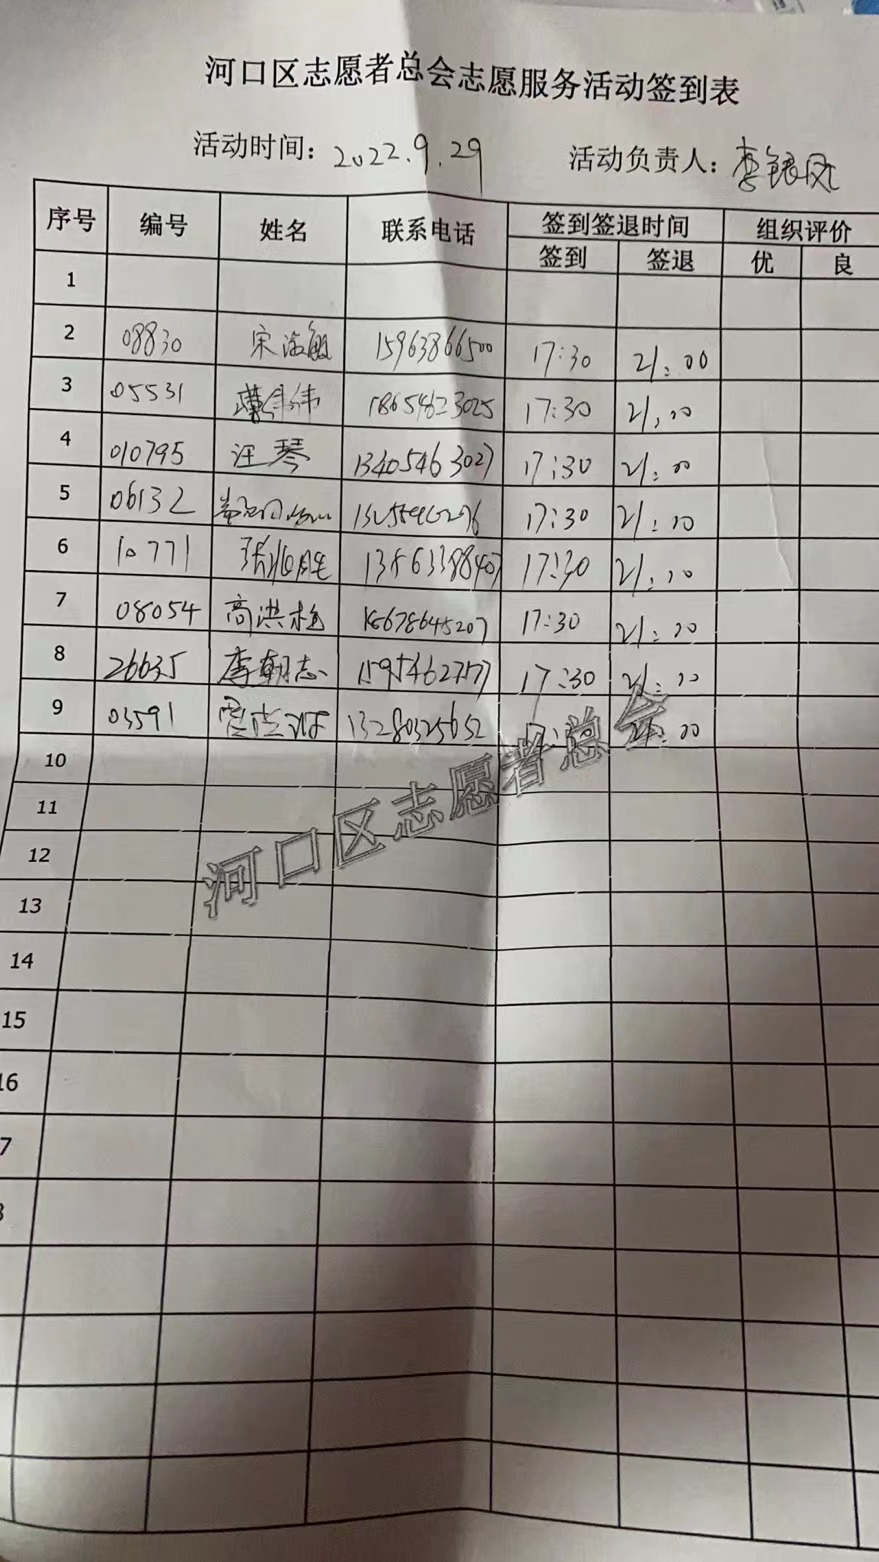 河口区志愿者总会志愿服务活动签到表
活动时间：2022.9.29 活动负责人：李银凤
序号 编号 姓名 联系电话 签到签退时间 组织评价
签到 签退 优 良
1
2 08830 宋洁敏 15963866500 17:30 21:00
3 05531 18654623025 17:30 21:00
4 010795 汪琴 13405463027 17:30 21:00
5 06132 17:30 21:00
6 10771 张兆胜 13563388407 17:30 21:00
7 08054 高洪柱 18678645207 17:30 21:00
8 26635 李朝志 15954627577 17:30 21:00
9 03591 13280325652 21:00
10
11
12
13
14
15
16
7
河口区志愿者总会